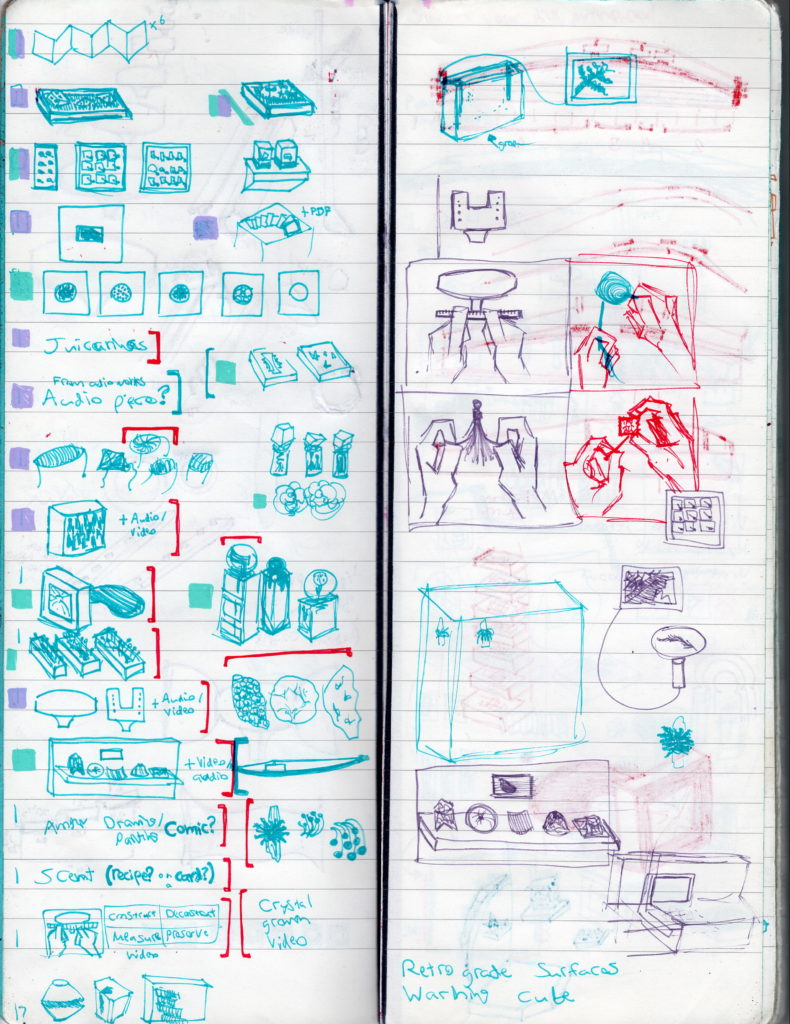 x6
+ PDF
Juicarinas
From audio works
Audio piece?
+ Audio/
Video
+ Audio/
Video
+ Video/
audio
Drawing/
Comic?
Scent (recipe? on
a
card?)
Construct
Deconstruct
Measure
Preserve
video
Crystal
grown
video
1?
grow
Retrograde Surfaces
Warning Cube